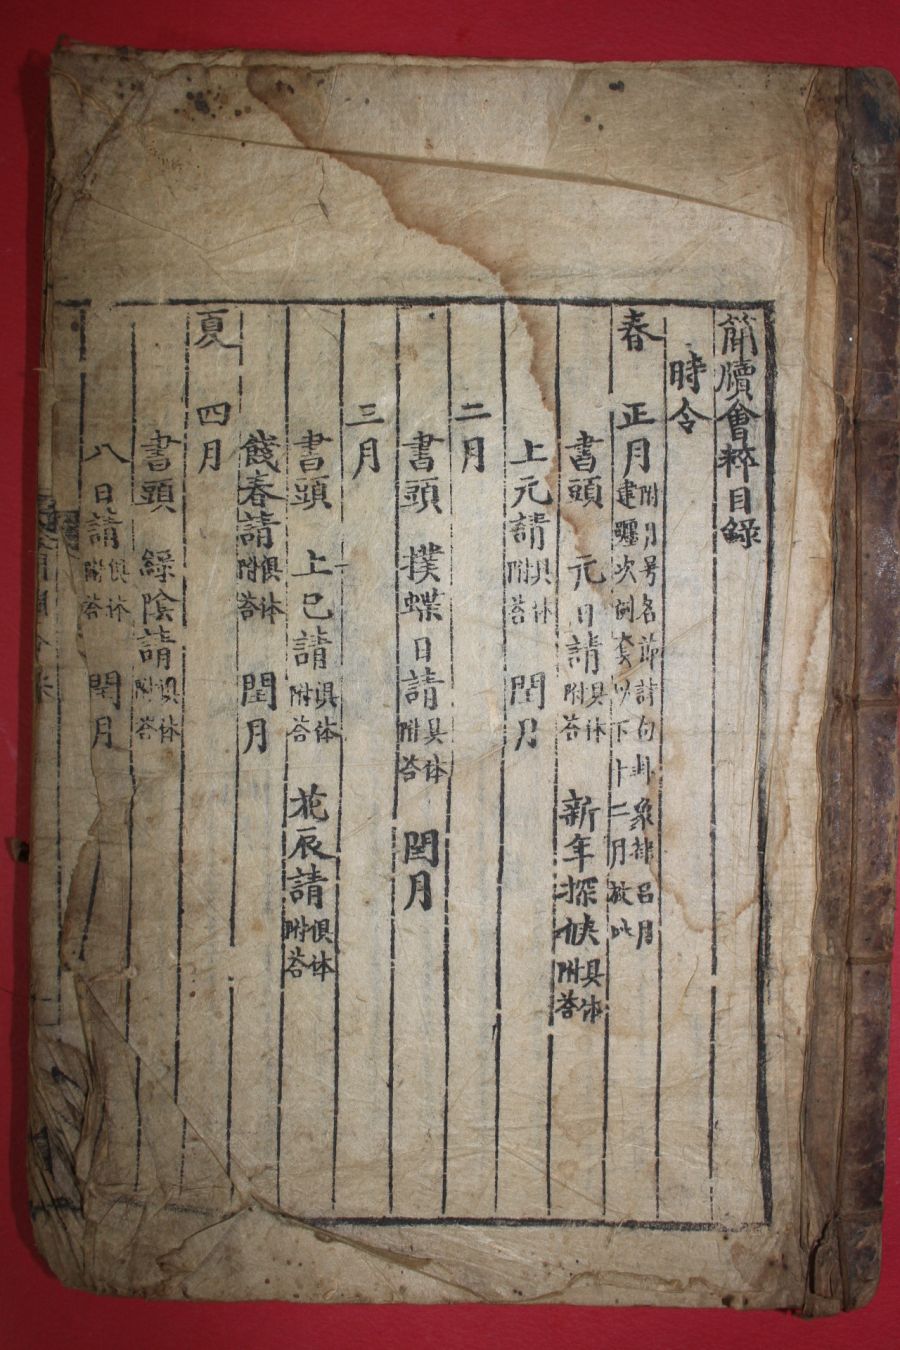 簡牘會粹目錄
時令
春 正月 附月号名節詩句卦象律呂月
建躔次闕套以下十二月放此
書頭 元日請 具体附答 新年探候 具体附答
上元請 具体附答 閏月
二月
書頭 撲蝶日請 具体附答 閏月
三月
書頭 上巳請 具体附答 花辰請 俱体附答
餞春請 俱体附答 閏月
夏 四月
書頭 綠陰請 俱体附答
八日請 俱体附答 閏月